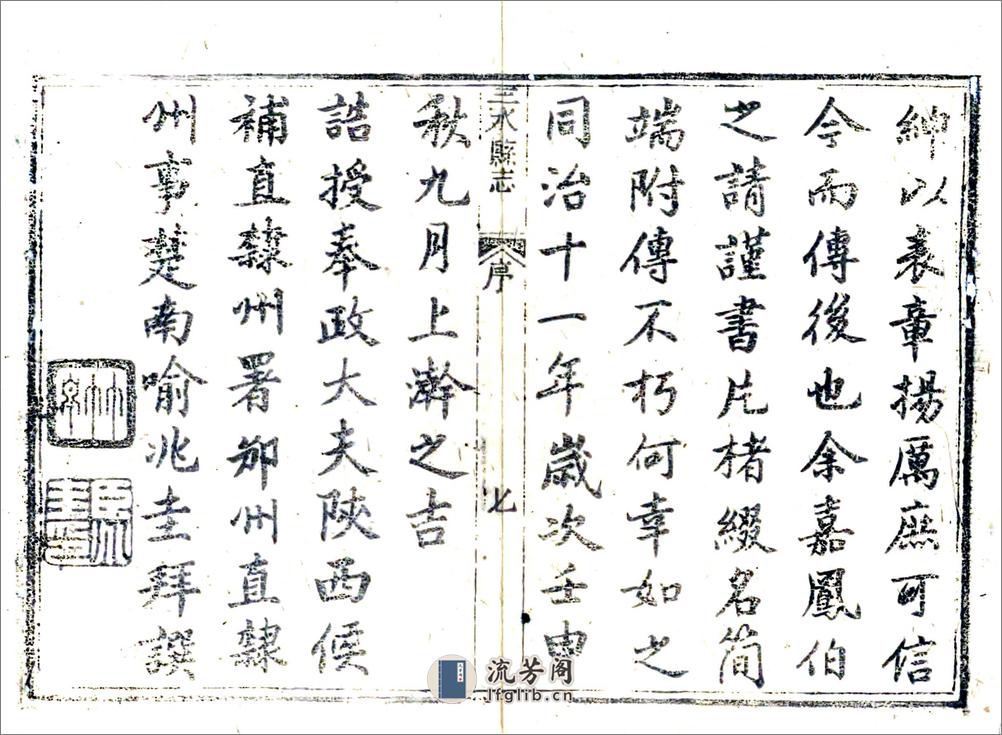 紳以表章揚厲庶可信
今而傳後也余嘉鳳伯
之請謹書片楮綴名簡
端附傳不朽何幸如之
同治十一年歲次壬申
三水縣志
序
七
秋九月上澣之吉
誥授奉政大夫陝西候
補直隸州署邠州直隸
州事楚南喻兆圭拜譔
流芳阁
jfglib.cn